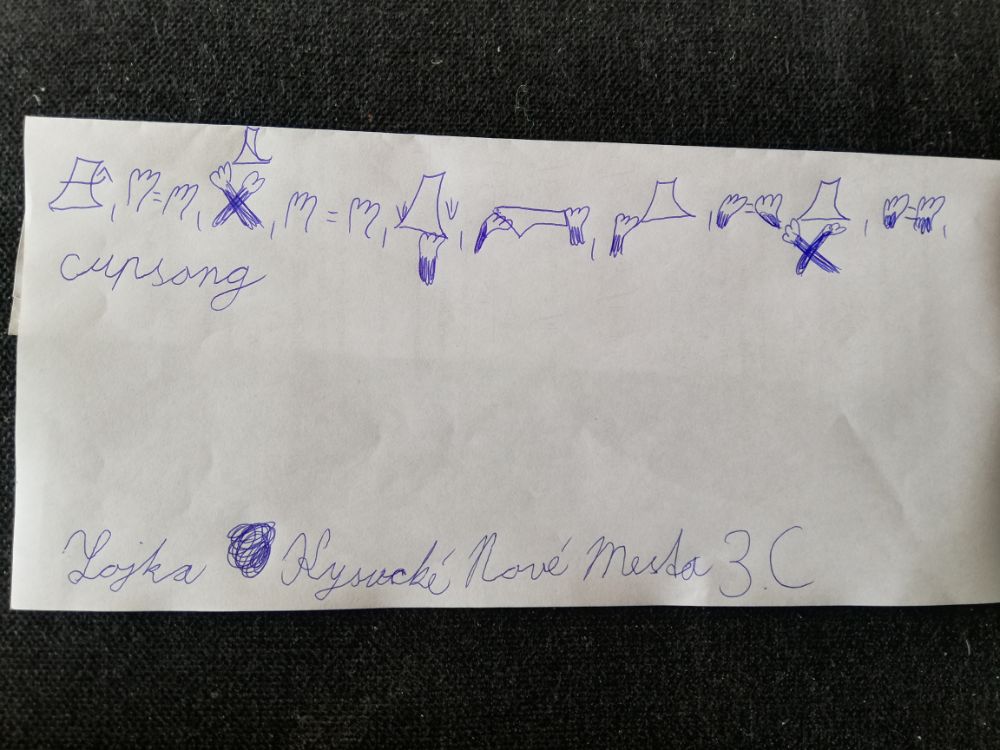 cupsong
Lojka Kysucké Nové Mesta 3.C